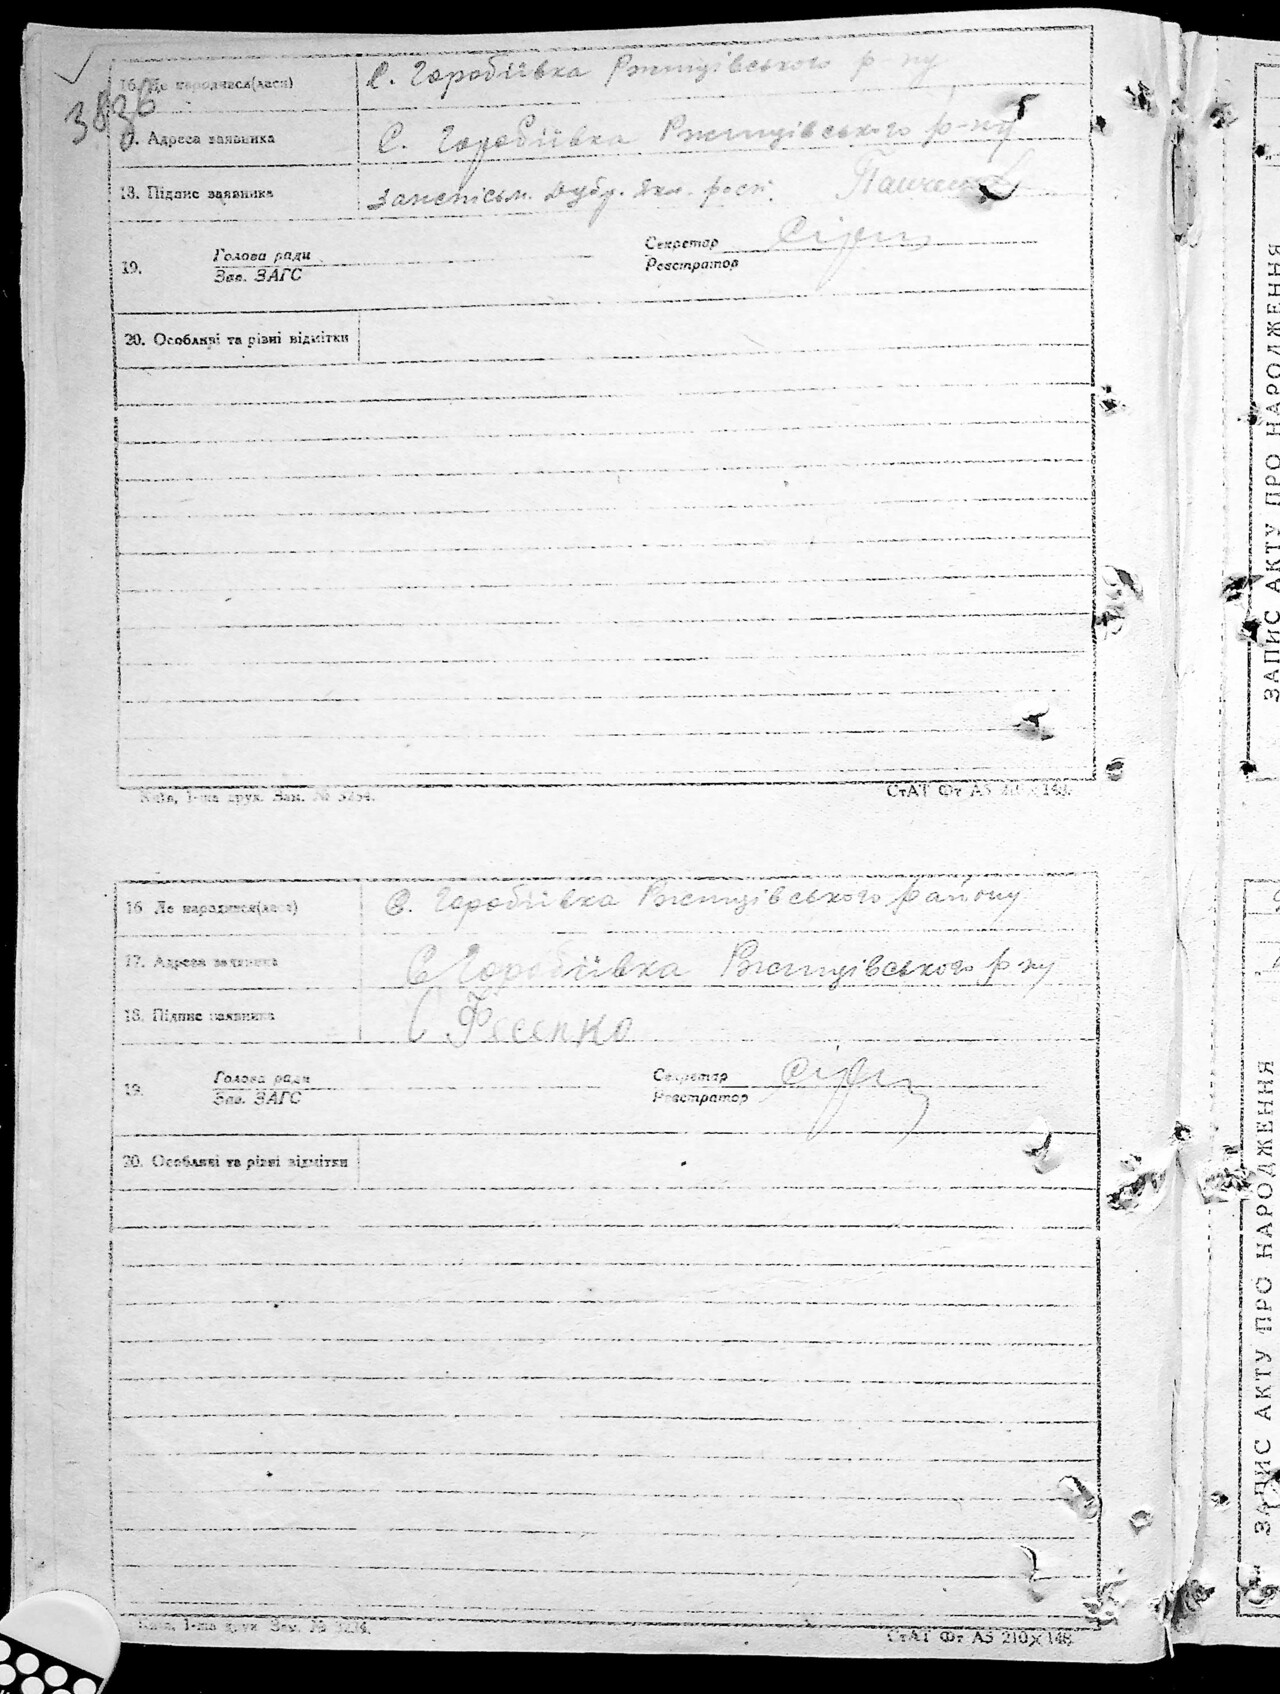 383б
16. Де народився(лася) С. Горобіївка Ржищівського р-ну
17. Адреса заявника С. Горобіївка Ржищівського р-ну
18. Підпис заявника
19. Голова ради Секретар
Зав. ЗАГС Реєстратор
20. Особливі та різні відмітки
Київ, 1-ша друк. Зам. № 5254.
СтАТ Фт А5 210×148.
16 Де народився(лася) С. Горобіївка Ржищівського району
17. Адреса заявника С Горобіївка Ржищівського р-ну
18. Підпис заявника С Фесенко
19. Голова ради Секретар
Зав. ЗАГС Реєстратор
20. Особливі та різні відмітки
Київ, 1-ша друк. Зам. № 5254.
СтАТ Фт А5 210×148
ЗАПИС АКТУ ПРО НАРОДЖЕННЯ
ЗАПИС АКТУ ПРО НАРОДЖЕННЯ